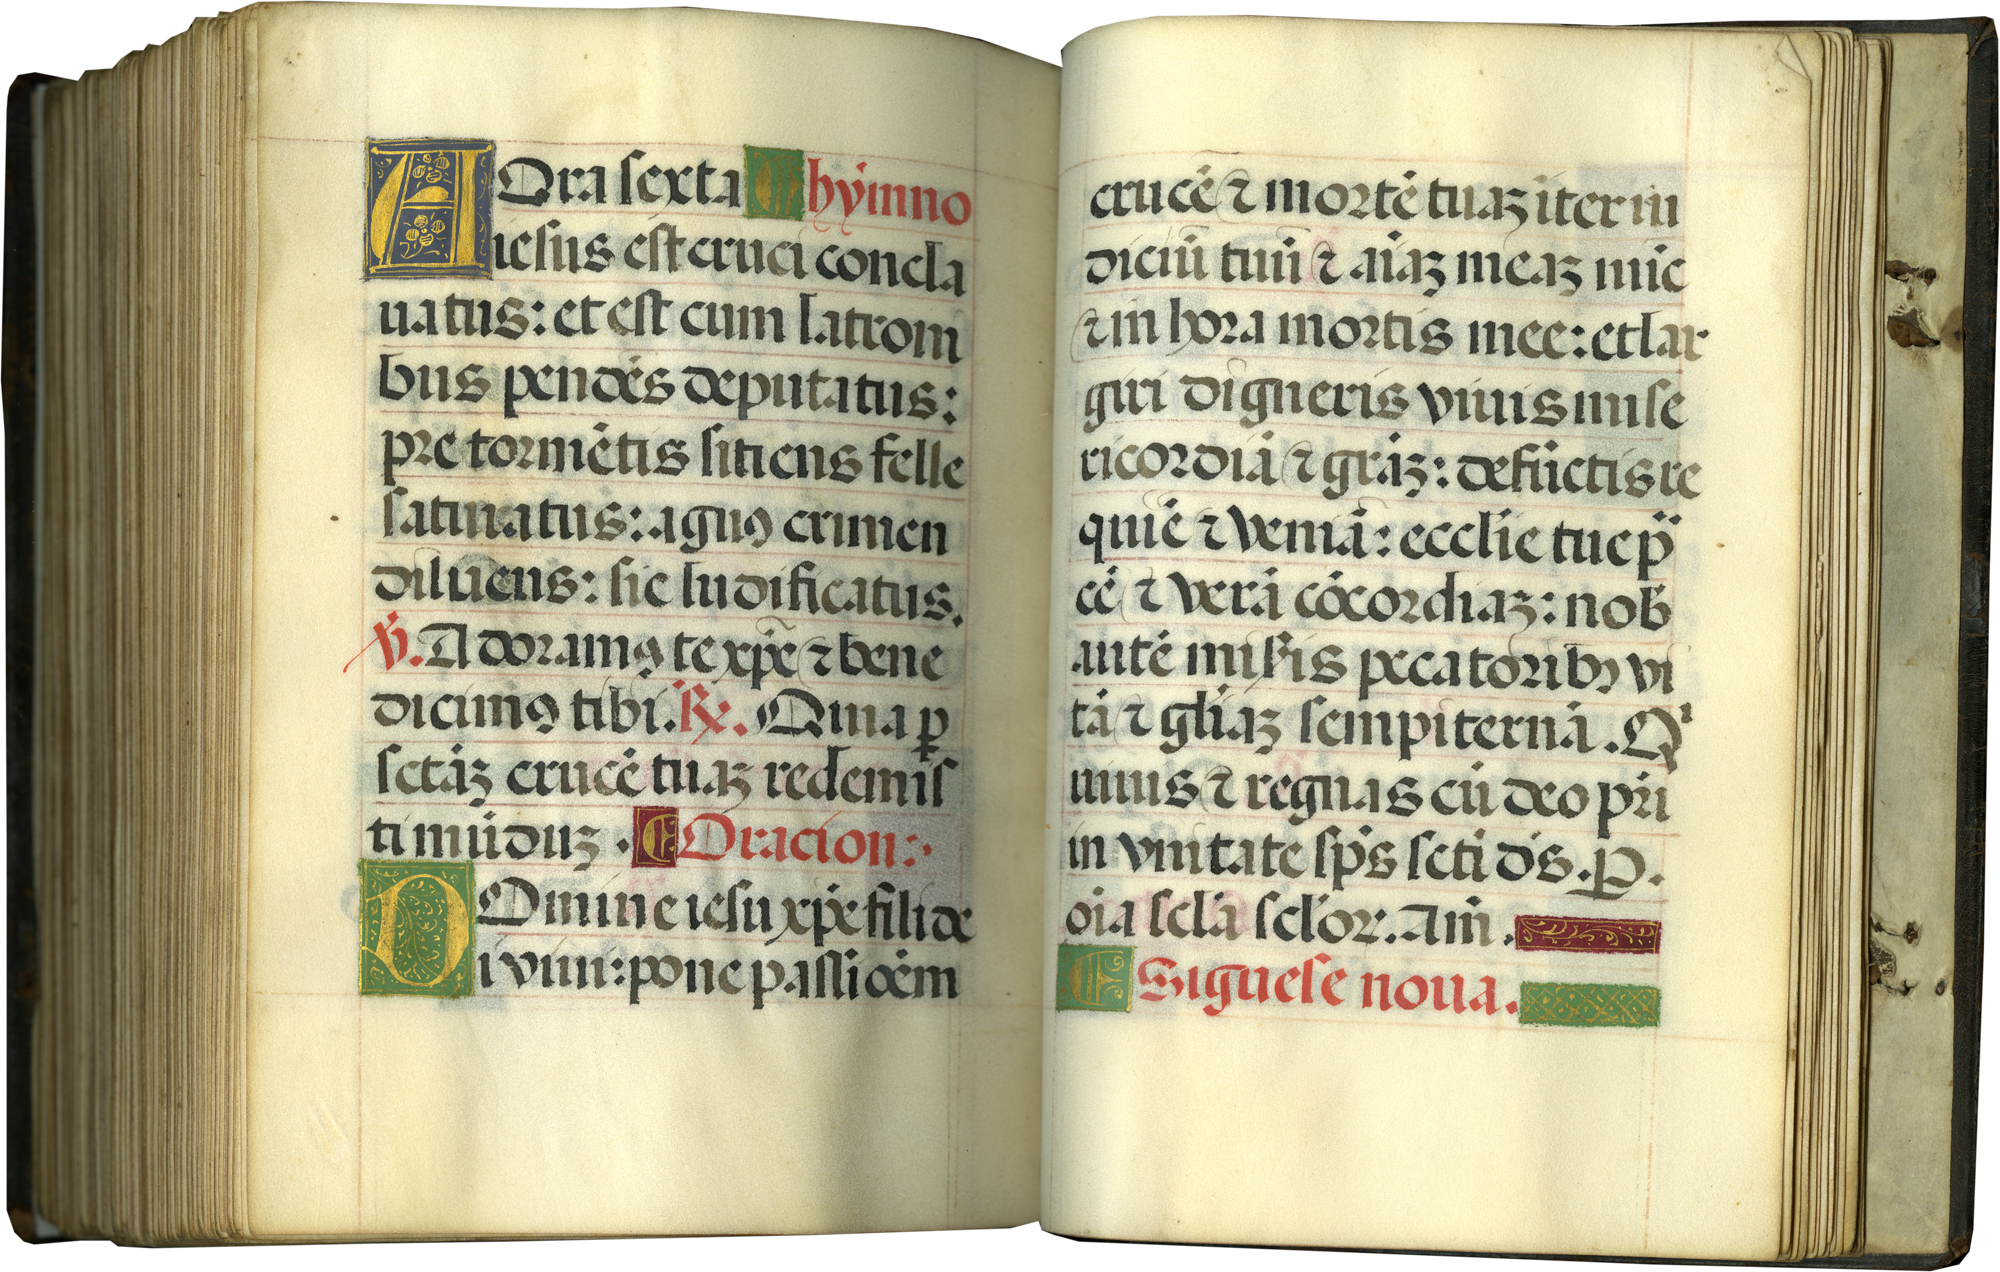 HOra sexta hymno
iesus est cruci concla
uatus: et est cum latroni
bus pendẽs deputatus:
pre tormẽtis sitiens felle
saturatus: agnꝰ crimen
diluens: sic ludificatus.
℣. Adoramꝰ te xp̃e ⁊ bene
dicimꝰ tibi. ℟. Quia ꝑ
sctãꝫ crucẽ tuaꝫ redemis
ti mũduꝫ. Oracion:
DOmine iesu xp̃e fili de
i viui: pone passioẽm
crucẽ ⁊ mortẽ tuaꝫ ĩter iu
diciũ tuũ ⁊ aĩaꝫ meaꝫ nũc
⁊ in hora mortis mee: et lar
giri digneris viuis mise
ricordiã ⁊ grãꝫ: defũctis re
quiẽ ⁊ veniã: ecclĩe tue pa
cẽ ⁊ verã cõcordiaꝫ: nob̃
autẽ misĩs pecatoribꝫ vi
tã ⁊ glĩaꝫ sempiternã. Qi
uiuis ⁊ regnas cũ deo pr̃i
in vnitate sp̃s scti d̃s. P.
oĩa scl̃a scl̃oꝝ. Am̃.
Siguese nona.